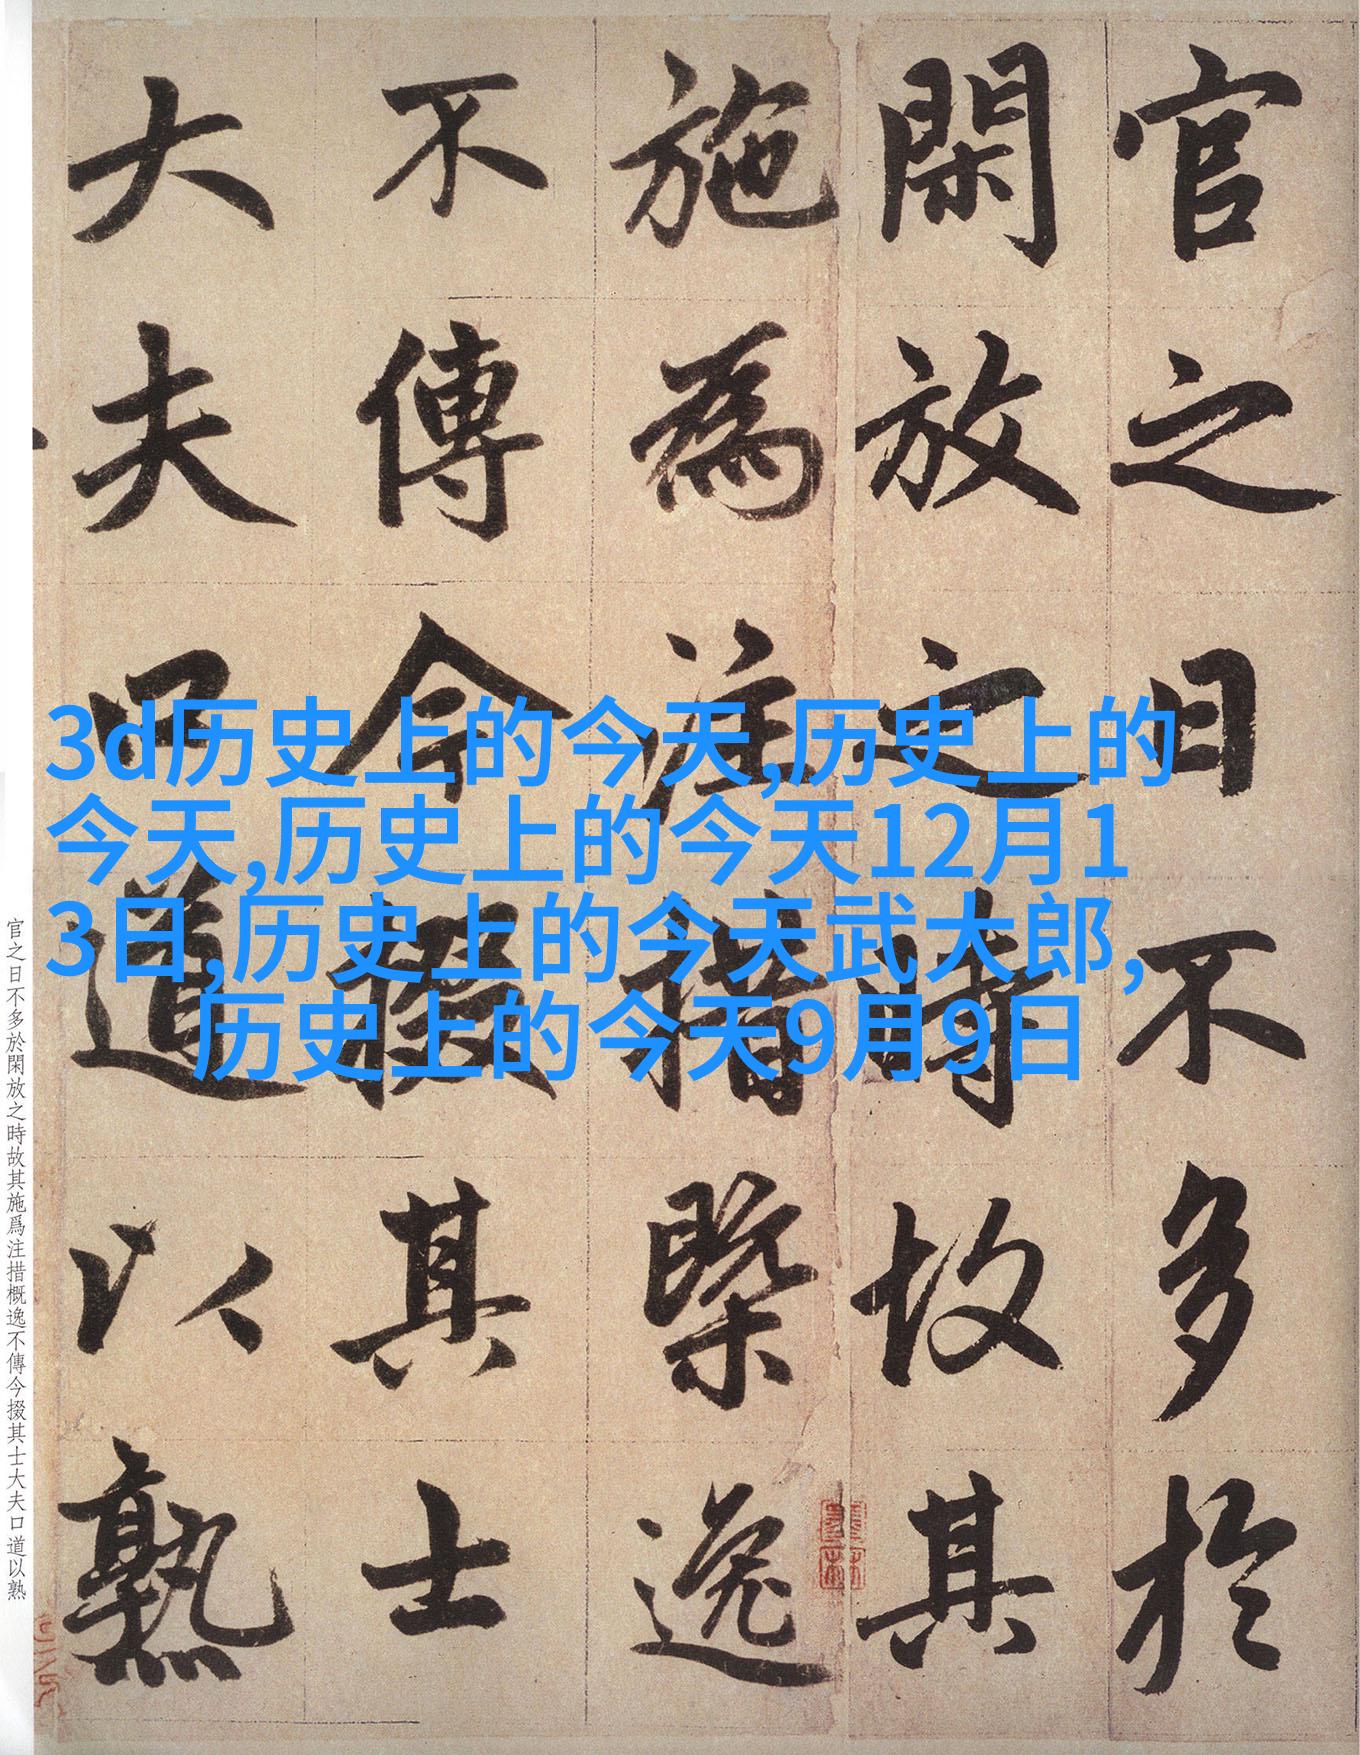 官之日不多於
閑放之時故其
施為注措槩逸
不傳今掇其士
大夫口道以熟
3d历史上的今天,历史上的
今天,历史上的今天12月1
3日,历史上的今天武大郎,
历史上的今天9月9日
官之日不多於閑放之時故其施爲注措概逸不傳今掇其士大夫口道以熟